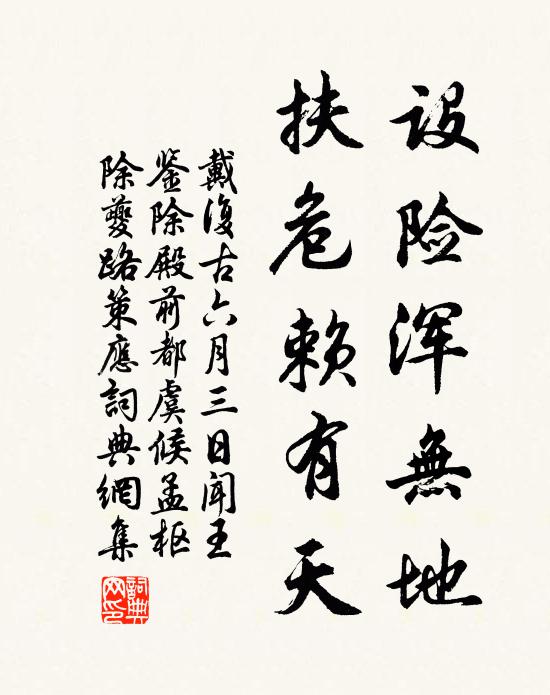 设险浑無地
扶危赖有天
戴復古六月三日闻王
鉴除殿前都虞候孟枢
除夔路策應詞典網集
詞典网印